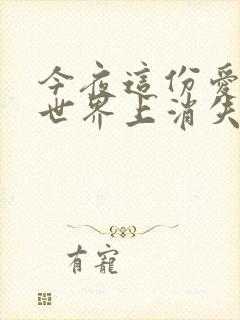 今夜這份愛
世界上消失
有寵